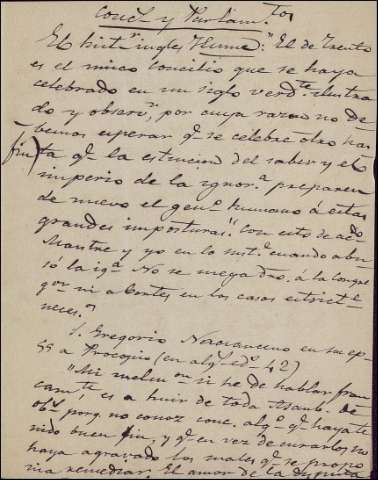 Conc.s y Parlam.tos
El hist.r ingles Hume: "El de Trento
es el único concilio que se haya
celebrado en un siglo verd.te ilustra
do y observ.r, por cuya razon no de
bemos esperar q.e se celebre otro has
ta q.e la estincion del saber y el
fin)
imperio de la ignor.a preparen
de nuevo el gen.o humano á estas
grandes imposturas." Con esto de ac.do
Maistre y yo en lo
ó la ig.a No se niega dro. á la
ni a Cortes en los casos
S. Gregorio Nacianceno en su ep.
55 a Procopio (en alg.s ed.s 42)
"Mi es si he de hablar fran
cam.te, es a huir de toda Asamb. de
ob.s porq. no conoz conc. alg.o q.e haya te
nido buen fin, y q.e en vez de curarlos no
haya agravado los males q.e se propo
nia remediar. El amor de la disputa